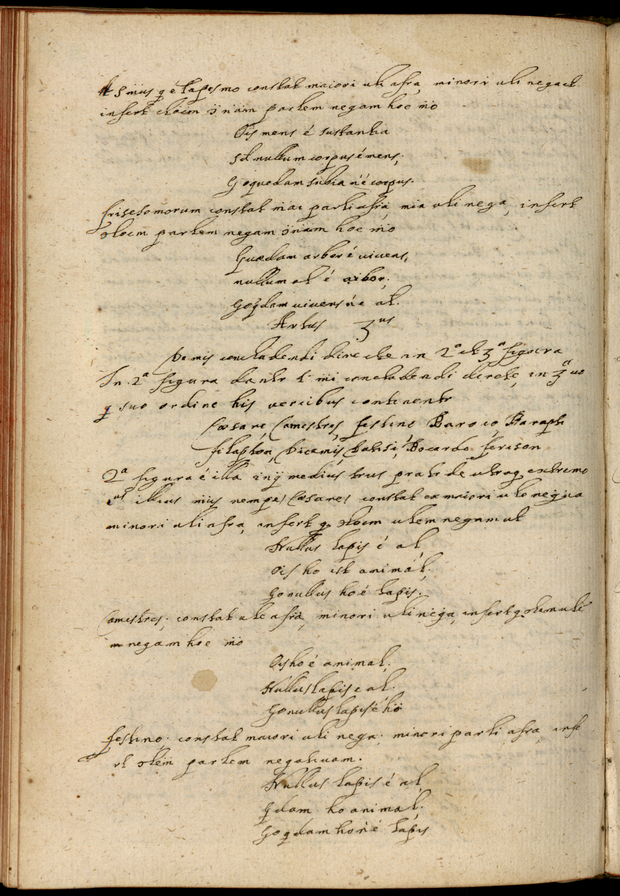 5 mus q̃ ẽ Fapesmo constat maiori uli afra, minori uli negat
infert cloem partem negam hoc mõ
Ois mens ẽ sustantia
Sd nullum corpus ẽ mens,
Go quodam subia nẽ corpus.
Frisesomorum constat mai parti afra, mia uli nega, infert
cloem partem negam hoc mõ
Quædam arbor ẽ vivens,
nullum al ẽ arbor,
Go qdam vivens nẽ al.
Artus 3us
De mis concludendi directe in 2a et 3a figura
In 2a figura dantr 4 mi concludendi directe, in 3a vo
q̃ suo ordine his versibus continentr
Cæsare, Camestres, Festino, Baroco, Darapti
Felapton, Disamis, Datisi, Bocardo, Ferison
2a figura ẽ illa in q̃ medius trus pratr de utroq extremo
ius illius mus nempe Cæsare constat ex maiori uli nega
minori uli afra, infert q cloem ulem negam ut
Nullus lapis ẽ al,
Ois ho est animal,
Go nullus ho ẽ lapis.
Camestres, constat uli afra, minori uli nega, infert q cloem ule
m negam hoc mõ
Ois ho ẽ animal.
Nullus lapis ẽ al.
Go nullus lapis ẽ hõ
Festino constat maiori uli nega, minori parti afra, infe
rt cloem partem negativam.
Nullus lapis ẽ al
qdam ho animal,
Go qdam ho nẽ lapis